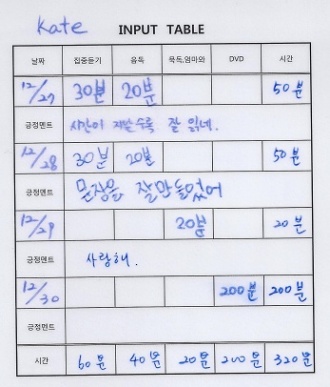 Kate INPUT TABLE
날짜 집중듣기 음독 묵독,엄마와 DVD 시간
12/27 30분 20분 50분
긍정멘트 시간이 지날수록 잘 읽네.
12/28 30분 20분 50분
긍정멘트 문장을 잘만들었어
12/29 20분 20분
긍정멘트 사랑해.
12/30 200분 200분
긍정멘트
시간 60분 40분 20분 200분 320분